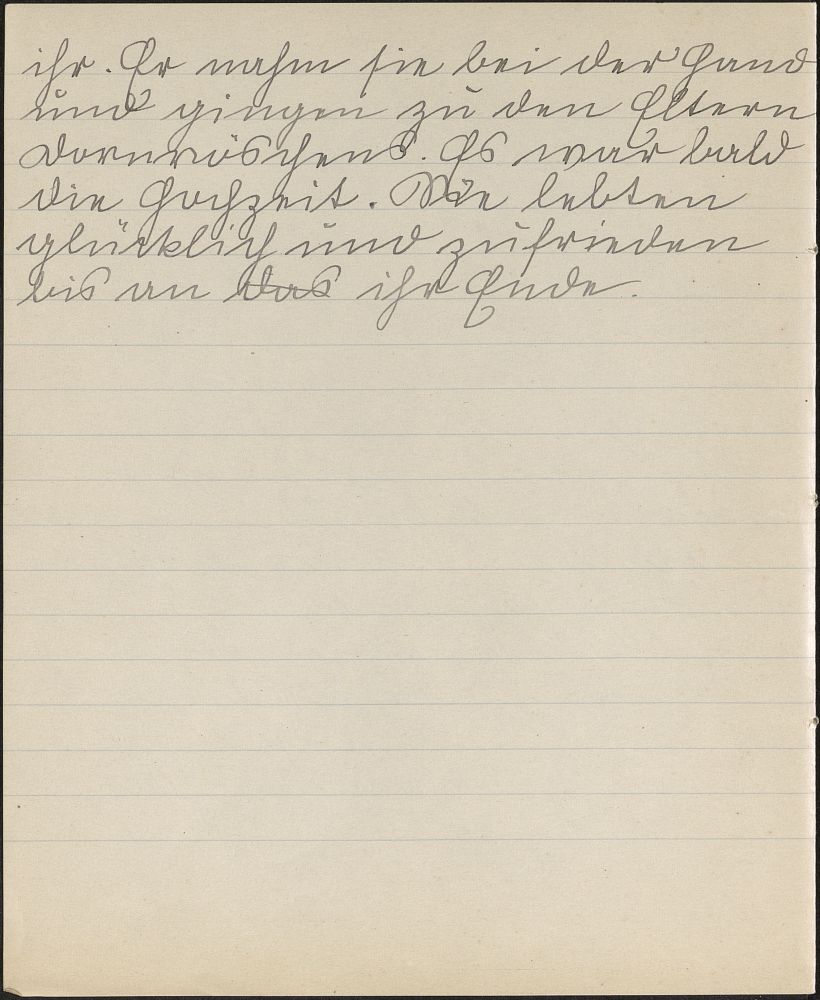 ihr. Er nahm sie bei der Hand
und gingen zu den Eltern
Dornröschens. Es war bald
die Hochzeit. Sie lebten
glücklich und zufrieden
bis an das ihr Ende.